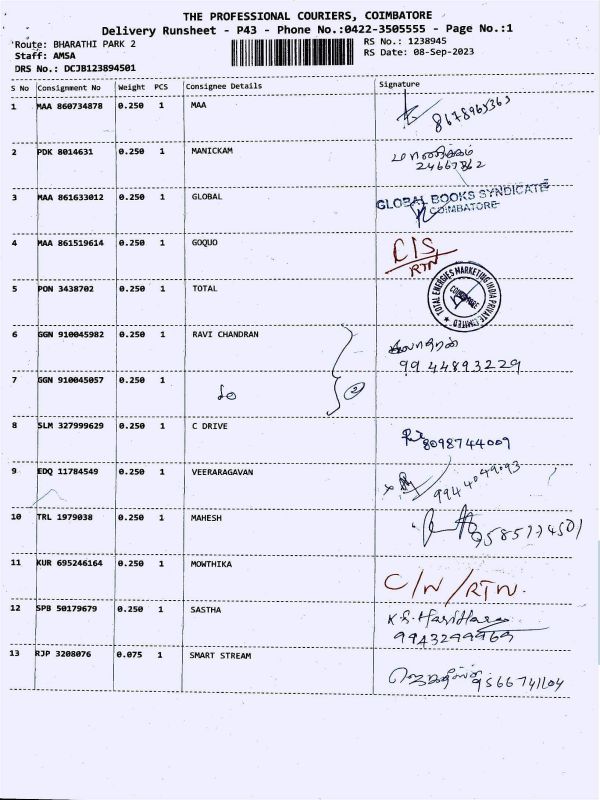 THE PROFESSIONAL COURIERS, COIMBATORE
Delivery Runsheet - P43 - Phone No.:0422-3505555 - Page No.:1
Route: BHARATHI PARK 2
RS No.: 1238945
Staff: AMSA
RS Date: 08-Sep-2023
DRS No.: DCJB123894501
S No Consignment No Weight PCS Consignee Details Signature
1 MAA 860734878 0.250 1 MAA
8678965363
2 PDK 8014631 0.250 1 MANICKAM மாணிக்கம்
24667862
3 MAA 861633012 0.250 1 GLOBAL GLOBAL BOOKS SYNDICATE
COIMBATORE
4 MAA 861519614 0.250 1 GOQUO C/S
RTN
5 PON 3438702 0.250 1 TOTAL TOTAL ENERGIES MARKETING INDIA PRIVATE LIMITED
6 GGN 910045982 0.250 1 RAVI CHANDRAN
9944893229
7 GGN 910045057 0.250 1 do 2
8 SLM 327999629 0.250 1 C DRIVE 8098744009
9 EDQ 11784549 0.250 1 VEERARAGAVAN 9944049093
10 TRL 1979038 0.250 1 MAHESH 9585774501
11 KUR 695246164 0.250 1 MOWTHIKA C/N/RTN.
12 SPB 50179679 0.250 1 SASTHA K.S. Hari Hara
9943299969
13 RJP 3208076 0.075 1 SMART STREAM 9566741104